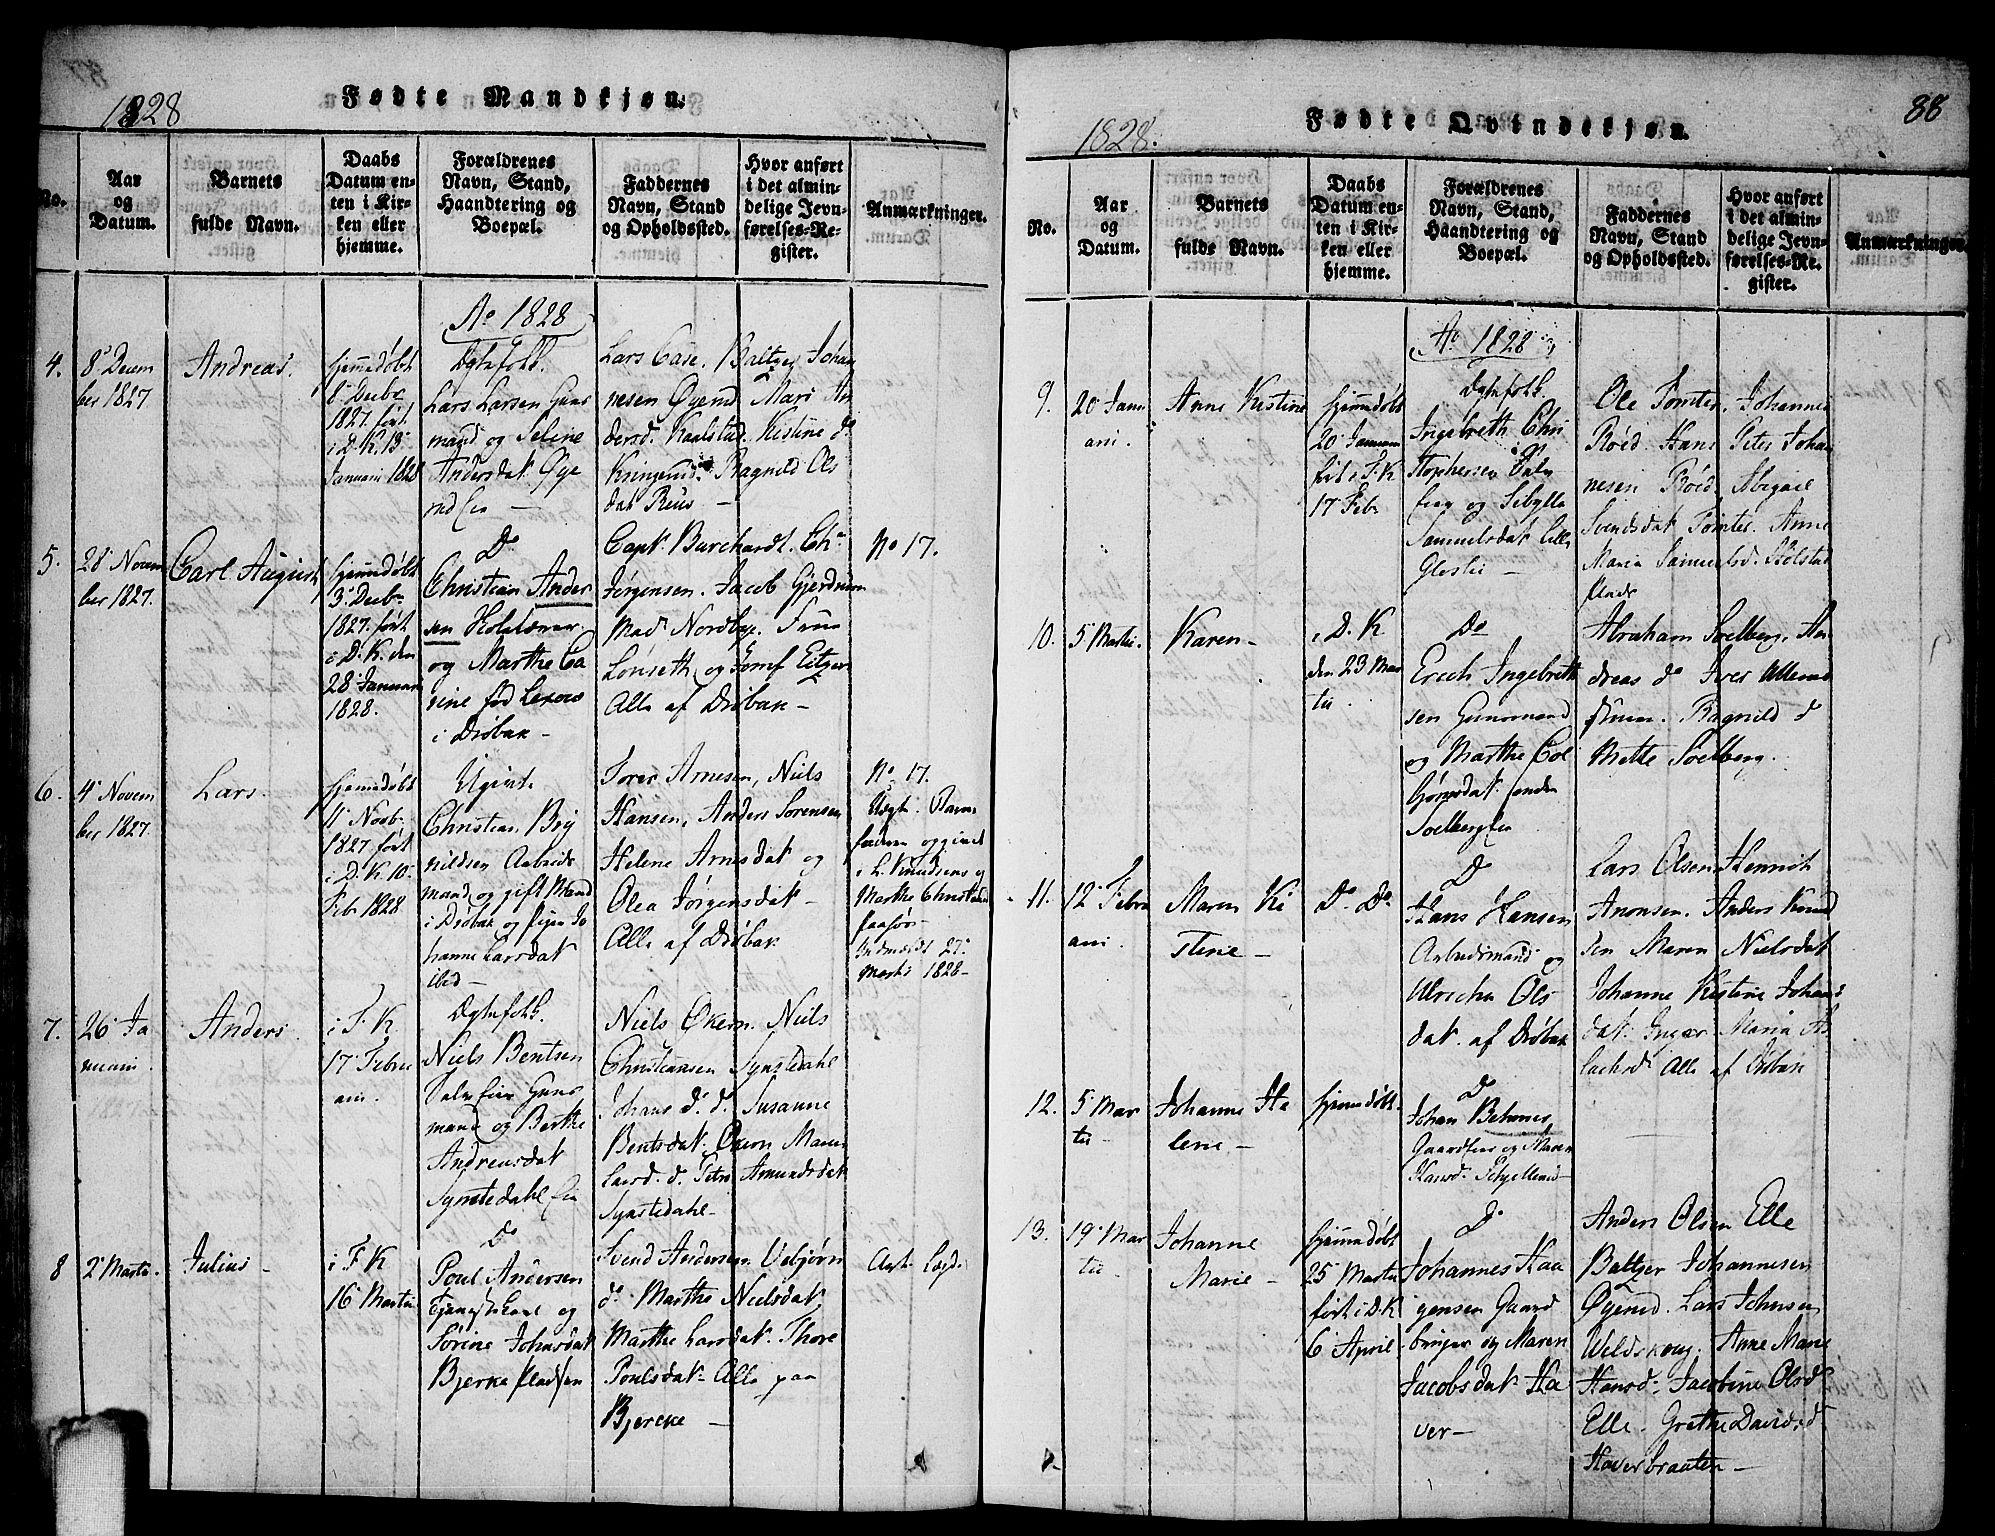 1828
Fødte Mandkjøn.
No.
Aar
og
Datum.
Barnets
fulde Navn.
Daabs
Datum en-
ten i Kir-
ken eller
hjemme.
Forældrenes
Navn, Stand,
Haandtering og
Boepæl.
Faddernes
Navn, Stand
og Opholdssted.
Hvor anført
i det almin-
delige Jevn-
førelses-Re-
gister.
Anmærkninger.
Ao 1828
4.
8de Decem
ber 1827
Andreas.
hjemmedøbt
8 Decbr
1827. ført
i D. K. 13
Januari 1828
Dgtefolk.
Lars Larsen Guns
mand og Seline
Andersdat
Lars Case. Baltzer Johan
nesen Øyerud Mari An
dersd. Kaalstad. Kistine do
Ragnild Ols
dat
5.
28 Novem
ber 1827.
Carl August
hjemmedøbt
3 Decbr
1827. ført
i D. K. den
28 Januar
1828.
Do
Christian Ander
sen
og Marthe Ca
rine fød
i Drøbak –
Capt. Burchardt. Chr
Jørgensen. Jacob Gjerdrum
Mad. Nordbye. Frue
og Jomf Eitzen
Alle af Drøbak –
No 17.
6.
4 Novem
ber 1827.
Lars.
hjemmedøbt
11 Novb.
1827. ført
i D. K. 10
Feb 1828
Ugivt.
Christian Bry
nildsen Arbeids
mand og gift Mand
i Drøbak og Pigen Jo
hanne Larsdat
ibid –
Arnesen, Niels
Hansen, Anders Sørensen
Helene Arnesdat og
Olea Jørgensdat –
Alle af Drøbak
No 17.
Uægt. Barne
faderen
i L. Knudsens og
Marthe
Indmeldt 27
Marts 1828 –
7.
26 Ja
nuari.
Anders.
i F. K
17 Febru
ari.
Dgtefolk.
Niels Bentsen
Guns
mand og Berthe
Andreasdat
Synstedahl
Niels Økern. Niels
Christiansen Synstedahl
Johans d. d. Susanne
Bentsdat. Økern Maren
Larsd. d. Petr. Amundsdat
Synstedahl –
8
2 Marti.
Julius –
i F. K
16 Martii
Do
Poul Andersen
Tjenestekarl og
Sørine Johnsdat
Bjerke Pladsen
Svend Andersen. Vebjørn
do Marthe Nielsdat
Marthe Larsdat. Thore
Poulsdat – Alle paa
Bjercke –
88
1828.
Fødte Qvindekjøn.
No.
Aar
og
Datum.
Barnets
fulde Navn.
Daabs
Datum en-
ten i Kir-
ken eller
hjemme.
Forældrenes
Navn, Stand,
Haandtering og
Boepæl.
Faddernes
Navn, Stand
og Opholdssted.
Hvor anført
i det almin-
delige Jevn-
førelses-Re-
gister.
Anmærkninger.
Ao 1828
9.
20 Janu
ari.
Anne Kistine
hjemmedøbt
20 Januar
ført i F. K
17 Febr
Dgtefolk.
Ingebreth Chri
stophersen
og Sibylla
Samuelsdat
Ole Tomter. Johannes
Røed. Hans Peter Johan
nesen Røed. Abigael
Svendsdat Tomter. Anne
Maria Samuelsd. Holstad
Plads
10.
5 Martii.
Karen –
i D. K
den 23 Mar
tii.
Do
Erich Ingebreth
sen Gunsmand
og Marthe
Abraham Soelberg. An
dreas do Iver
Ragnild d
Mette Soelberg.
11.
12 Febru
ari.
Maren Ki
stine –
Do Do
D
Hans Hansen
Arbeidsmand og
Ulricha Ols
dat. af Drøbak
Lars Olsen Henrich
Anonsen. Anders Knud
sen Maren Nielsdat
Johanne Kistine Johans
dat. Ingær Maria As
lachsd. Alle af Drøbak
12.
5 Mar
tii –
Johanne Ha
lene –
hjemmedøbt.
D
Johan Behmer,
Gaardfier og Maren
Hansd.
13.
19 Mar
tii.
Johanne
Marie –
hjemmedøbt
25 Martii
ført i D. K
6 April –
D
Johannes Haa
gensen Gaard
bruger og Maren
Jacobsdat Ha
ver –
Anders Olsen Elle
Baltzer Johannesen
Øyerud. Lars Johnsen
Anne Marie
Hansd. Jacobine Olsd
Elle. Grethe Davidsd
Haverbraaten –